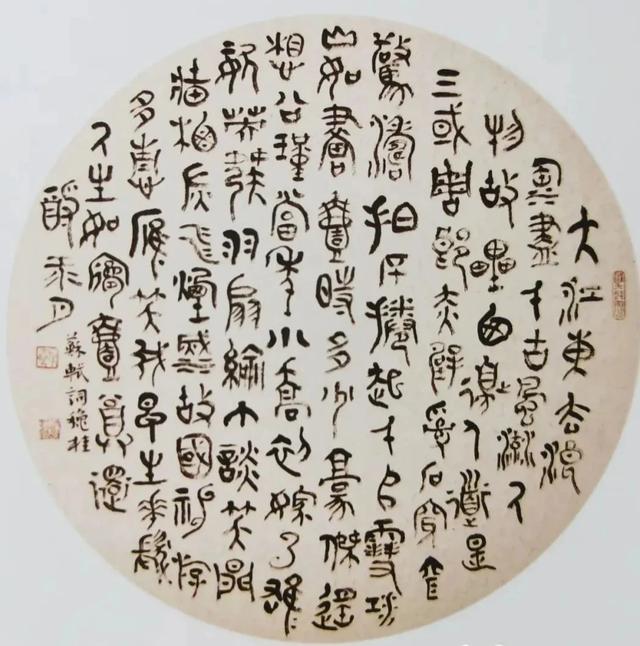 大江東去浪
淘盡千古風流人
物故壘西邊人道是
三國周郎赤壁亂石穿空
驚濤拍岸捲起千堆雪江
山如畫壹時多少豪傑遙
想公瑾當年小喬初嫁了雄
姿英發羽扇綸巾談笑間
檣櫓灰飛煙滅故國神遊
多情應笑我早生華髮
人生如夢壹尊還
酹江月
蘇軾詞